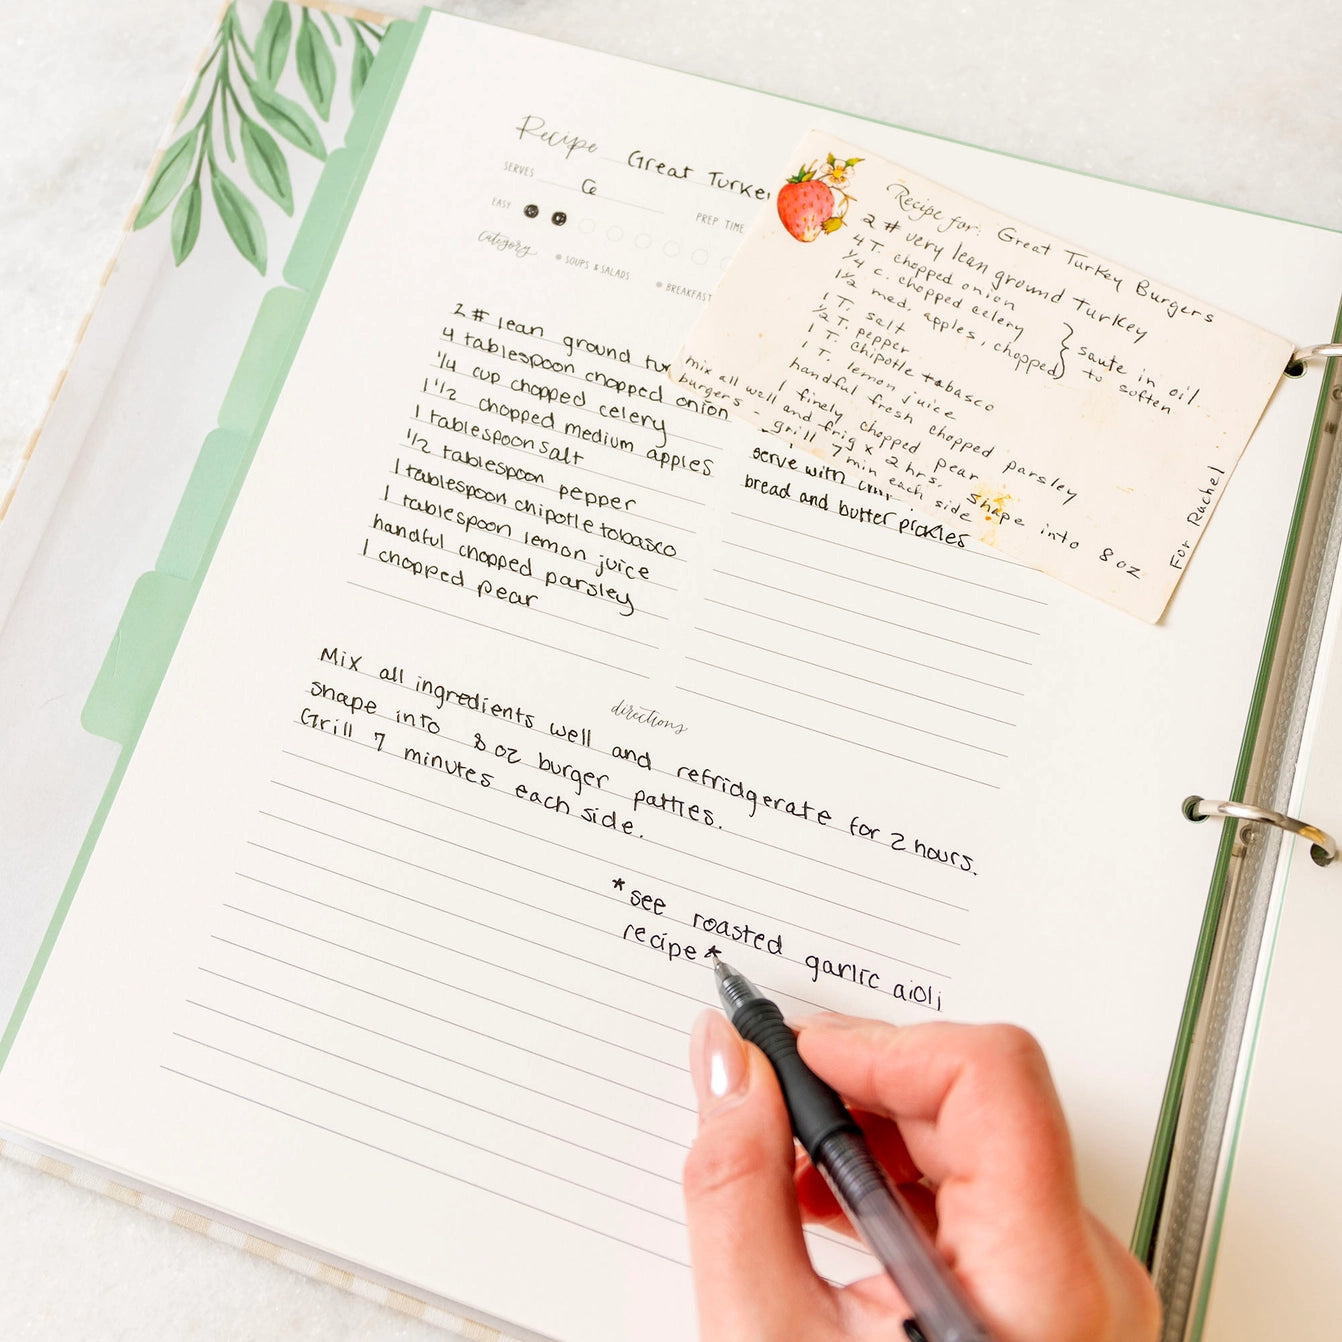 Recipe Great Turkey
SERVES 6 PREP TIME
EASY
category SOUPS & SALADS BREAKFAST
2 # lean ground tur
4 tablespoon chopped onion
1/4 cup chopped celery
1 1/2 chopped medium apples
1 tablespoon salt
1/2 tablespoon pepper
1 tablespoon chipotle tobasco
1 tablespoon lemon juice
handful chopped parsley
1 chopped pear
serve with
bread and butter pickles
directions
Mix all ingredients well and refridgerate for 2 hours.
shape into 8 oz burger patties.
Grill 7 minutes each side.
*see roasted garlic aioli
recipe*
Recipe for: Great Turkey Burgers
2 # very lean ground Turkey
4 T. chopped onion
1/4 c. chopped celery
1 1/2 med. apples, chopped } saute in oil.. to soften
1 T. salt
1/2 T. pepper
1 T. chipotle tabasco
1 T. lemon juice
handful fresh chopped parsley
1 finely chopped pear
mix all well and frig x 2 hrs. Shape into 8 oz
burgers - grill 7 min each side
For Rachel